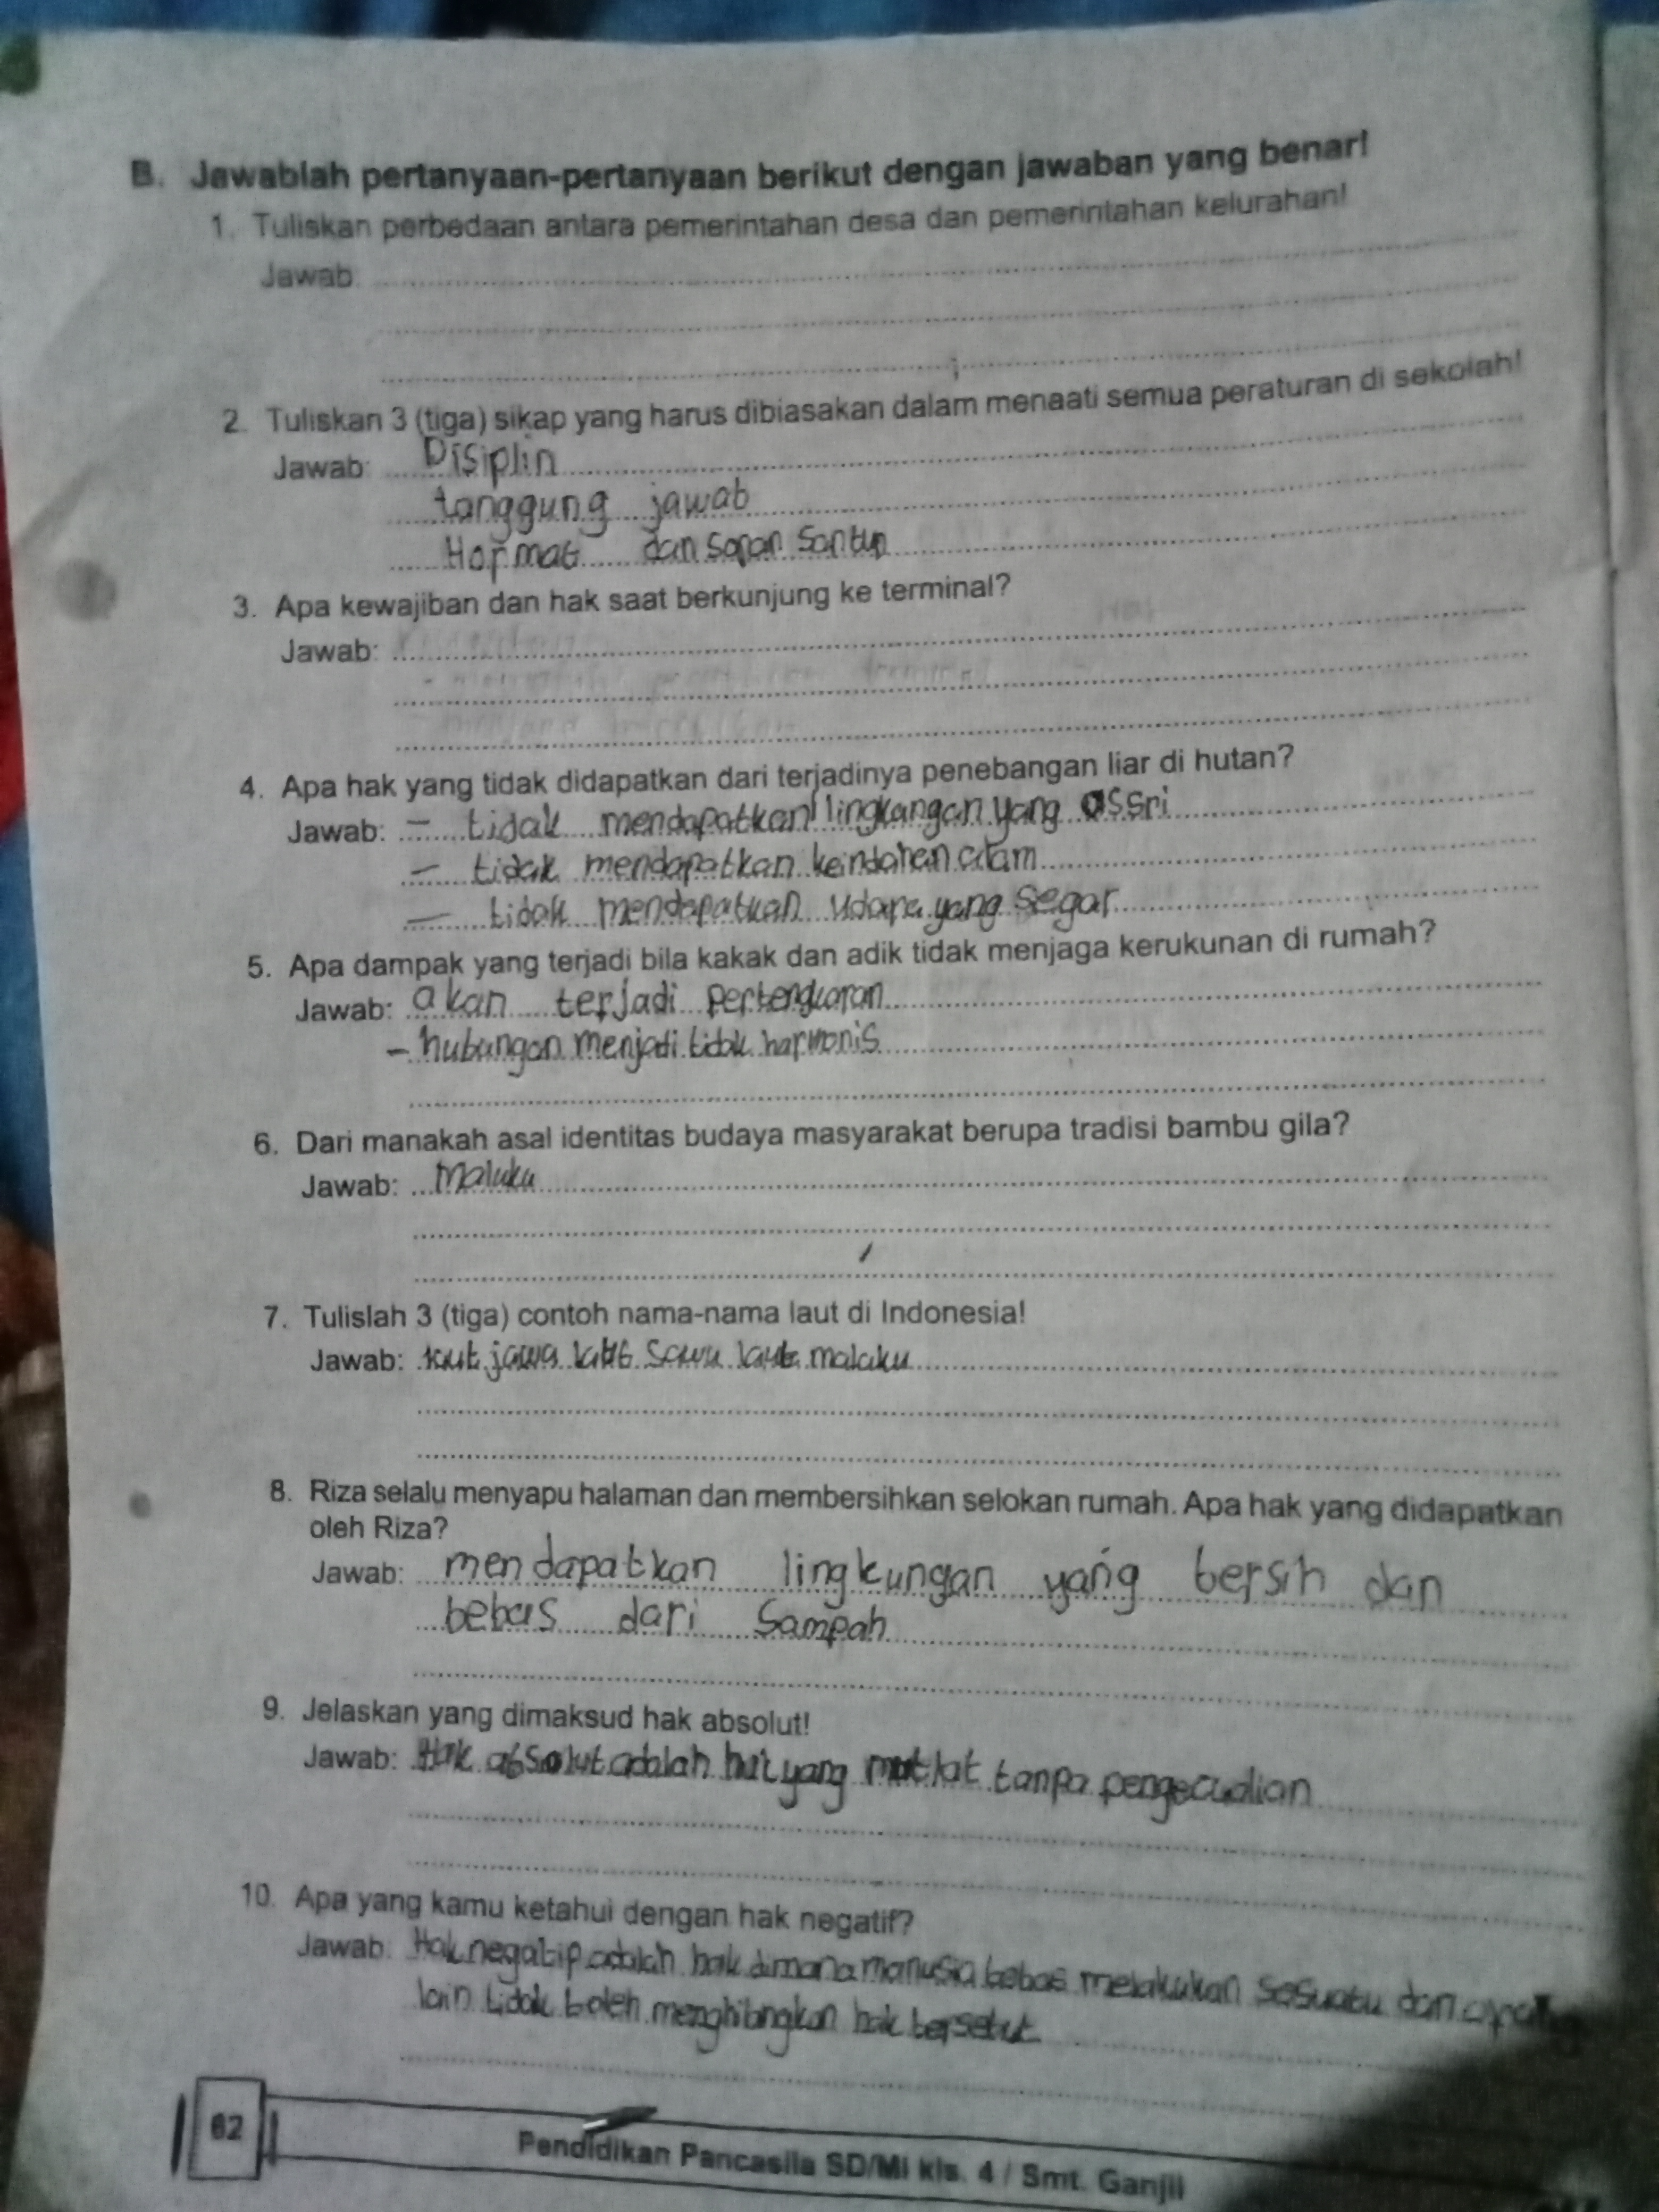 B. Jawablah pertanyaan-pertanyaan berikut dengan jawaban yang benar!
1. Tuliskan perbedaan antara pemerintahan desa dan pemerintahan kelurahan!
Jawab:
2. Tuliskan 3 (tiga) sikap yang harus dibiasakan dalam menaati semua peraturan di sekolah!
Jawab: Disiplin
tanggung jawab
Hormat dan sopan santun
3. Apa kewajiban dan hak saat berkunjung ke terminal?
Jawab:
4. Apa hak yang tidak didapatkan dari terjadinya penebangan liar di hutan?
Jawab: - tidak mendapatkan lingkangan yang assri
- tidak mendapatkan keindahan alam
- tidak mendapatkan udara yang segar
5. Apa dampak yang terjadi bila kakak dan adik tidak menjaga kerukunan di rumah?
Jawab: akan terjadi pertengkaran
- hubungan menjadi tidak harmonis
6. Dari manakah asal identitas budaya masyarakat berupa tradisi bambu gila?
Jawab: Maluku
7. Tulislah 3 (tiga) contoh nama-nama laut di Indonesia!
Jawab: laut jawa laut sawu laut maluku
8. Riza selalu menyapu halaman dan membersihkan selokan rumah. Apa hak yang didapatkan
oleh Riza?
Jawab: mendapatkan lingkungan yang bersih dan
bebas dari Sampah
9. Jelaskan yang dimaksud hak absolut!
Jawab: Hak absolut adalah yang mutlat tanpa pengecualian
10. Apa yang kamu ketahui dengan hak negatif?
Jawab: Hak negatip adalah hak dimana manusia bebas melakukan sesuatu dan
lain tidak boleh menghilangkan hak tersebut
62
Pendidikan Pancasila SD/MI kls. 4 / Smt. Ganjil